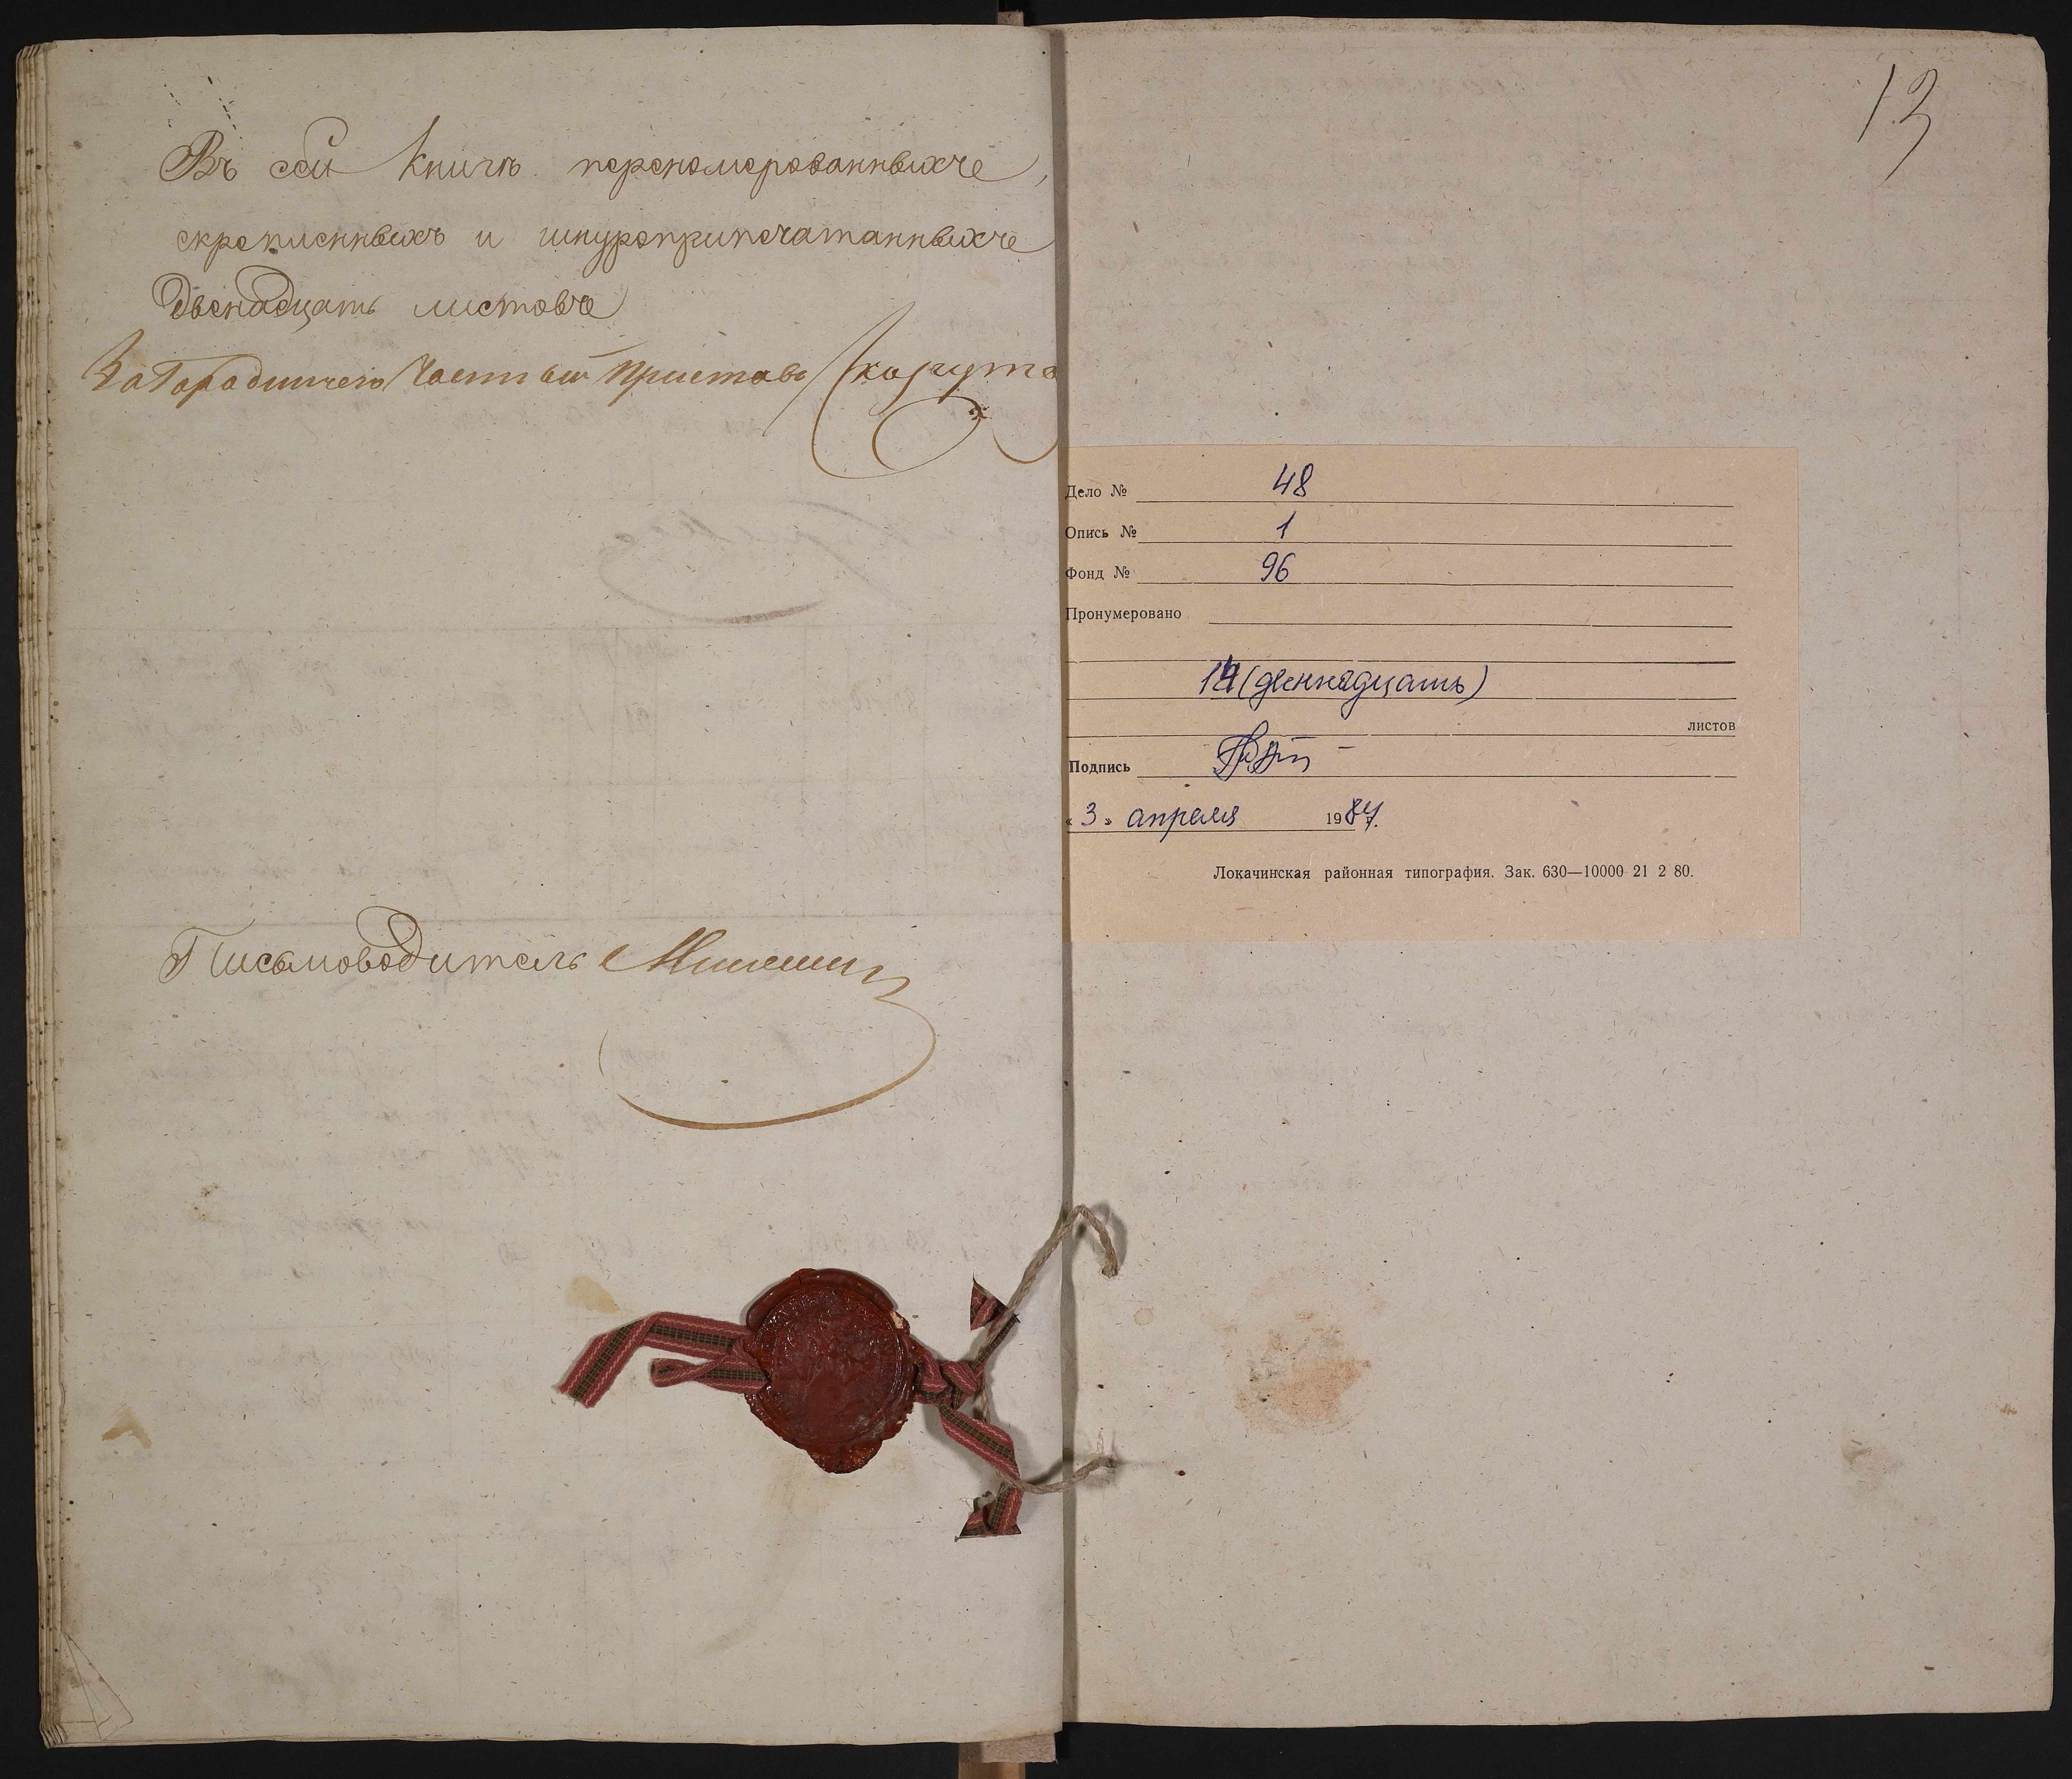 Въ сей книгѣ перономерованныхъ,
скрепленныхъ и шнуроприпечатанныхъ
Двенадцать листовъ
За Городничего Частный Приставъ
Письмоводитель
13
Дело № 48
Опись № 1
Фонд № 96
Пронумеровано
14 (двенадцать)
листов
Подпись
« 3 » апреля 1984.
Локачинская районная типография. Зак. 630—10000 21 2 80.